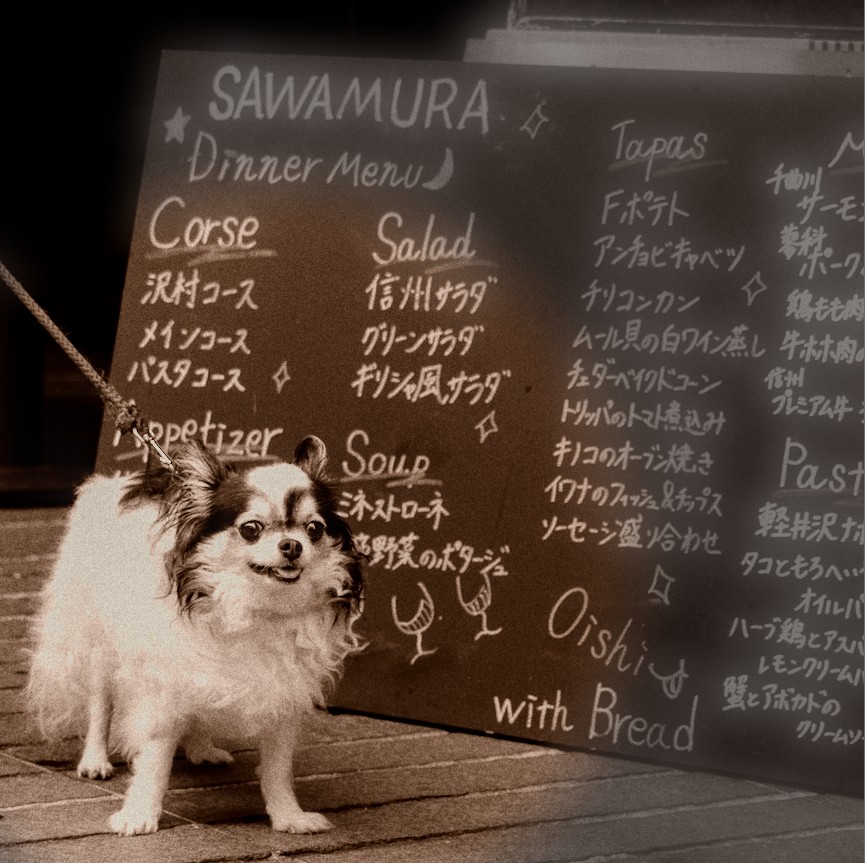 SAWAMURA
Dinner Menu
Corse
沢村コース
メインコース
パスタコース
Appetizer
Salad
信州サラダ
グリーンサラダ
ギリシャ風サラダ
Soup
ミネストローネ
野菜のポタージュ
Tapas
Fポテト
アンチョビキャベツ
チリコンカン
ムール貝の白ワイン蒸し
チェダーベイクドコーン
トリッパのトマト煮込み
キノコのオーブン焼き
イワナのフィッシュ&チップス
ソーセージ盛り合わせ
Oishii
with Bread
千曲川
サーモ
蓼科
ポーク
鶏もも肉
牛ホホ肉の
信州
プレミアム牛
Past
軽井沢ナポ
タコともろへ…
オイルパ
ハーブ鶏とアスパ
レモンクリームパ
蟹とアボカドの
クリームソー